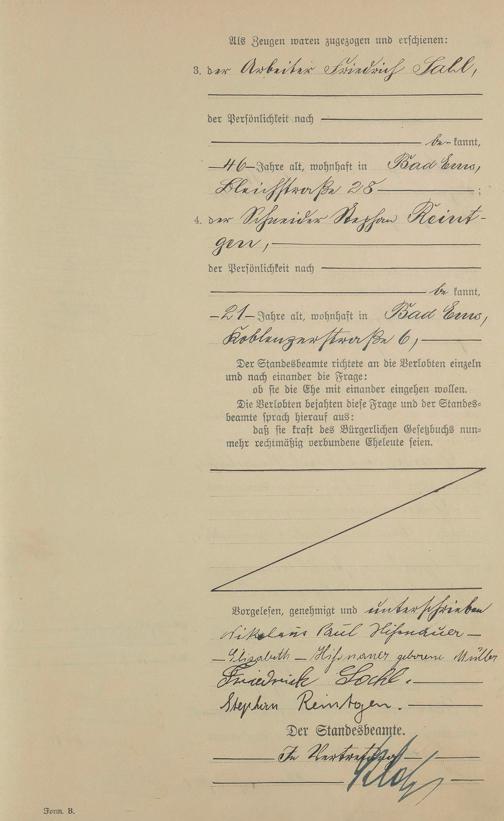 Als Zeugen waren zugezogen und erschienen:
3. der Arbeiter Friedrich
der Persönlichkeit nach
be-kannt,
46 Jahre alt, wohnhaft in Bad Ems,
Bleichstraße 28 ;
4. der Schneider Stephan Reint-
gen,
der Persönlichkeit nach
be kannt,
21 Jahre alt, wohnhaft in Bad Ems,
Koblenzerstraße 6,
Der Standesbeamte richtete an die Verlobten einzeln
und nach einander die Frage:
ob sie die Ehe mit einander eingehen wollen.
Die Verlobten bejahten diese Frage und der Standes-
beamte sprach hierauf aus:
daß sie kraft des Bürgerlichen Gesetzbuchs nun-
mehr rechtmäßig verbundene Eheleute seien.
Vorgelesen, genehmigt und unterschrieben
Nikolaus Paul
Elisabeth geborene Müller
Friedrich
Stephan Reintgen.
Der Standesbeamte.
In Vertretung
Form. B.